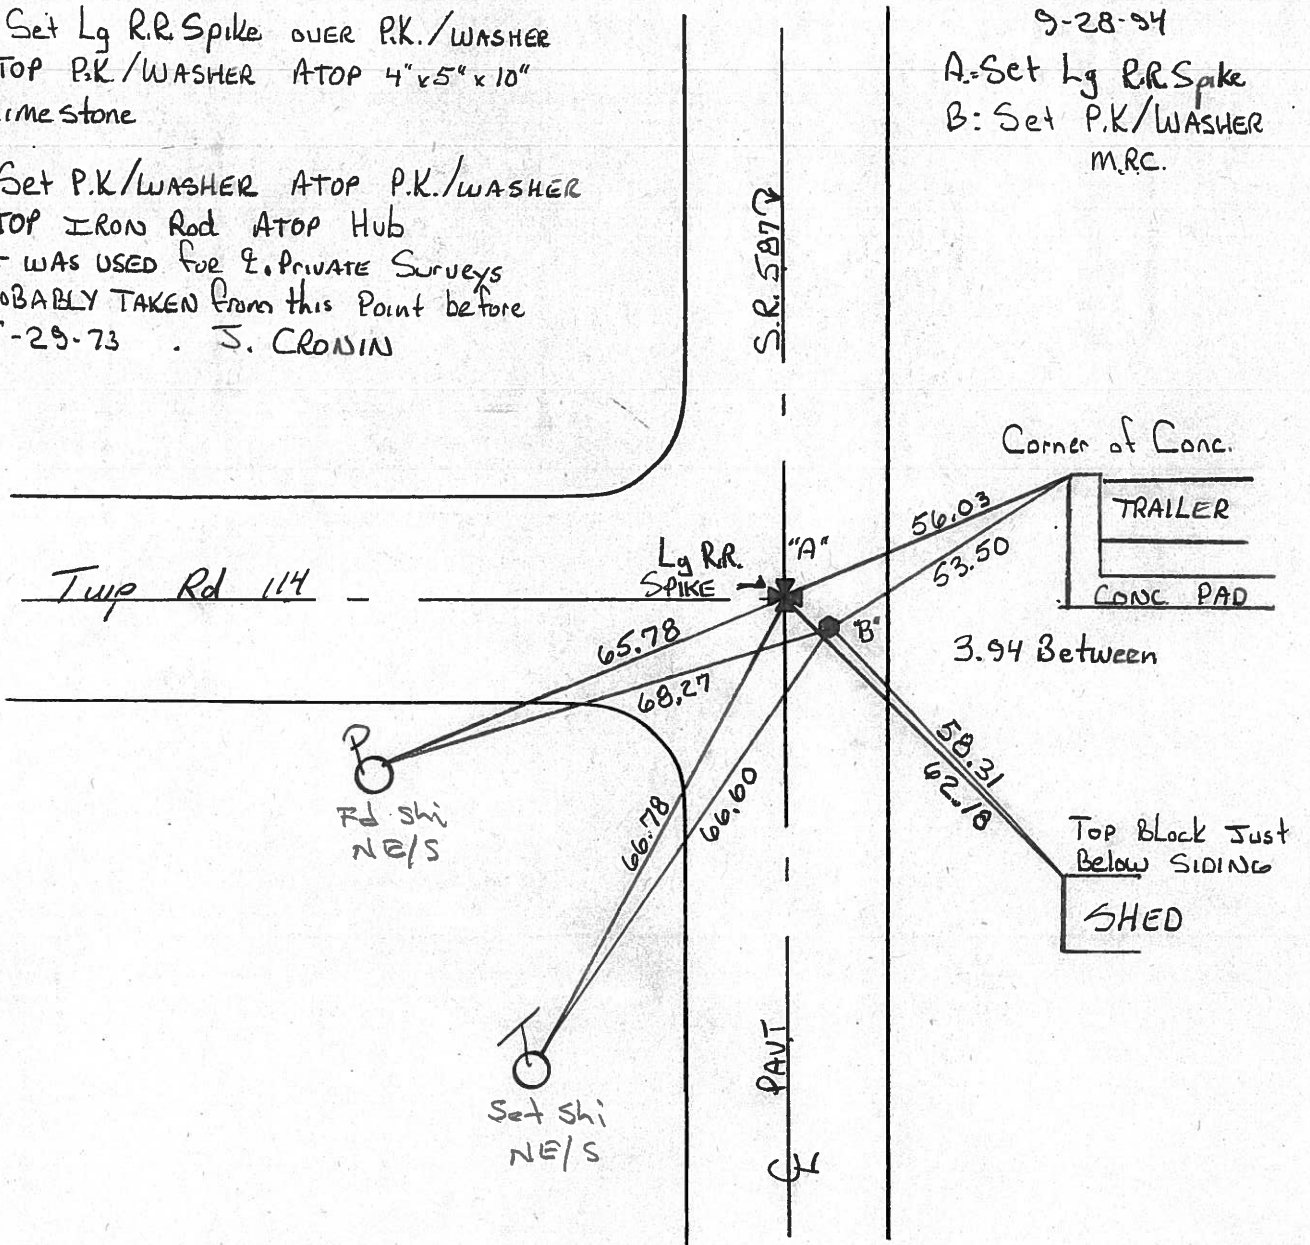 Set Lg R.R. Spike OVER P.K./WASHER
TOP P.K/WASHER ATOP 4"x5"x10"
imestone
Set P.K/WASHER ATOP P.K./WASHER
TOP IRON Rod ATOP Hub
WAS USED for ℄. PrIVATE Surveys
OBABLY TAKEN from this Point before
-29-73 . J. CRONIN
9-28-94
A:Set Lg R.R Spike
B: Set P.K/WASHER
M.R.C.
S.R. 587
Corner of Conc.
TRAILER
CONC PAD
56.03
53.50
"A"
Lg R.R.
SPIKE
Twp Rd 114
"B"
3.94 Between
65.78
68.27
58.31
62.18
P
Fd Shi
NE/S
66.78
66.60
Top Block Just
Below SIDING
SHED
Set Shi
NE/S
PAVT
℄